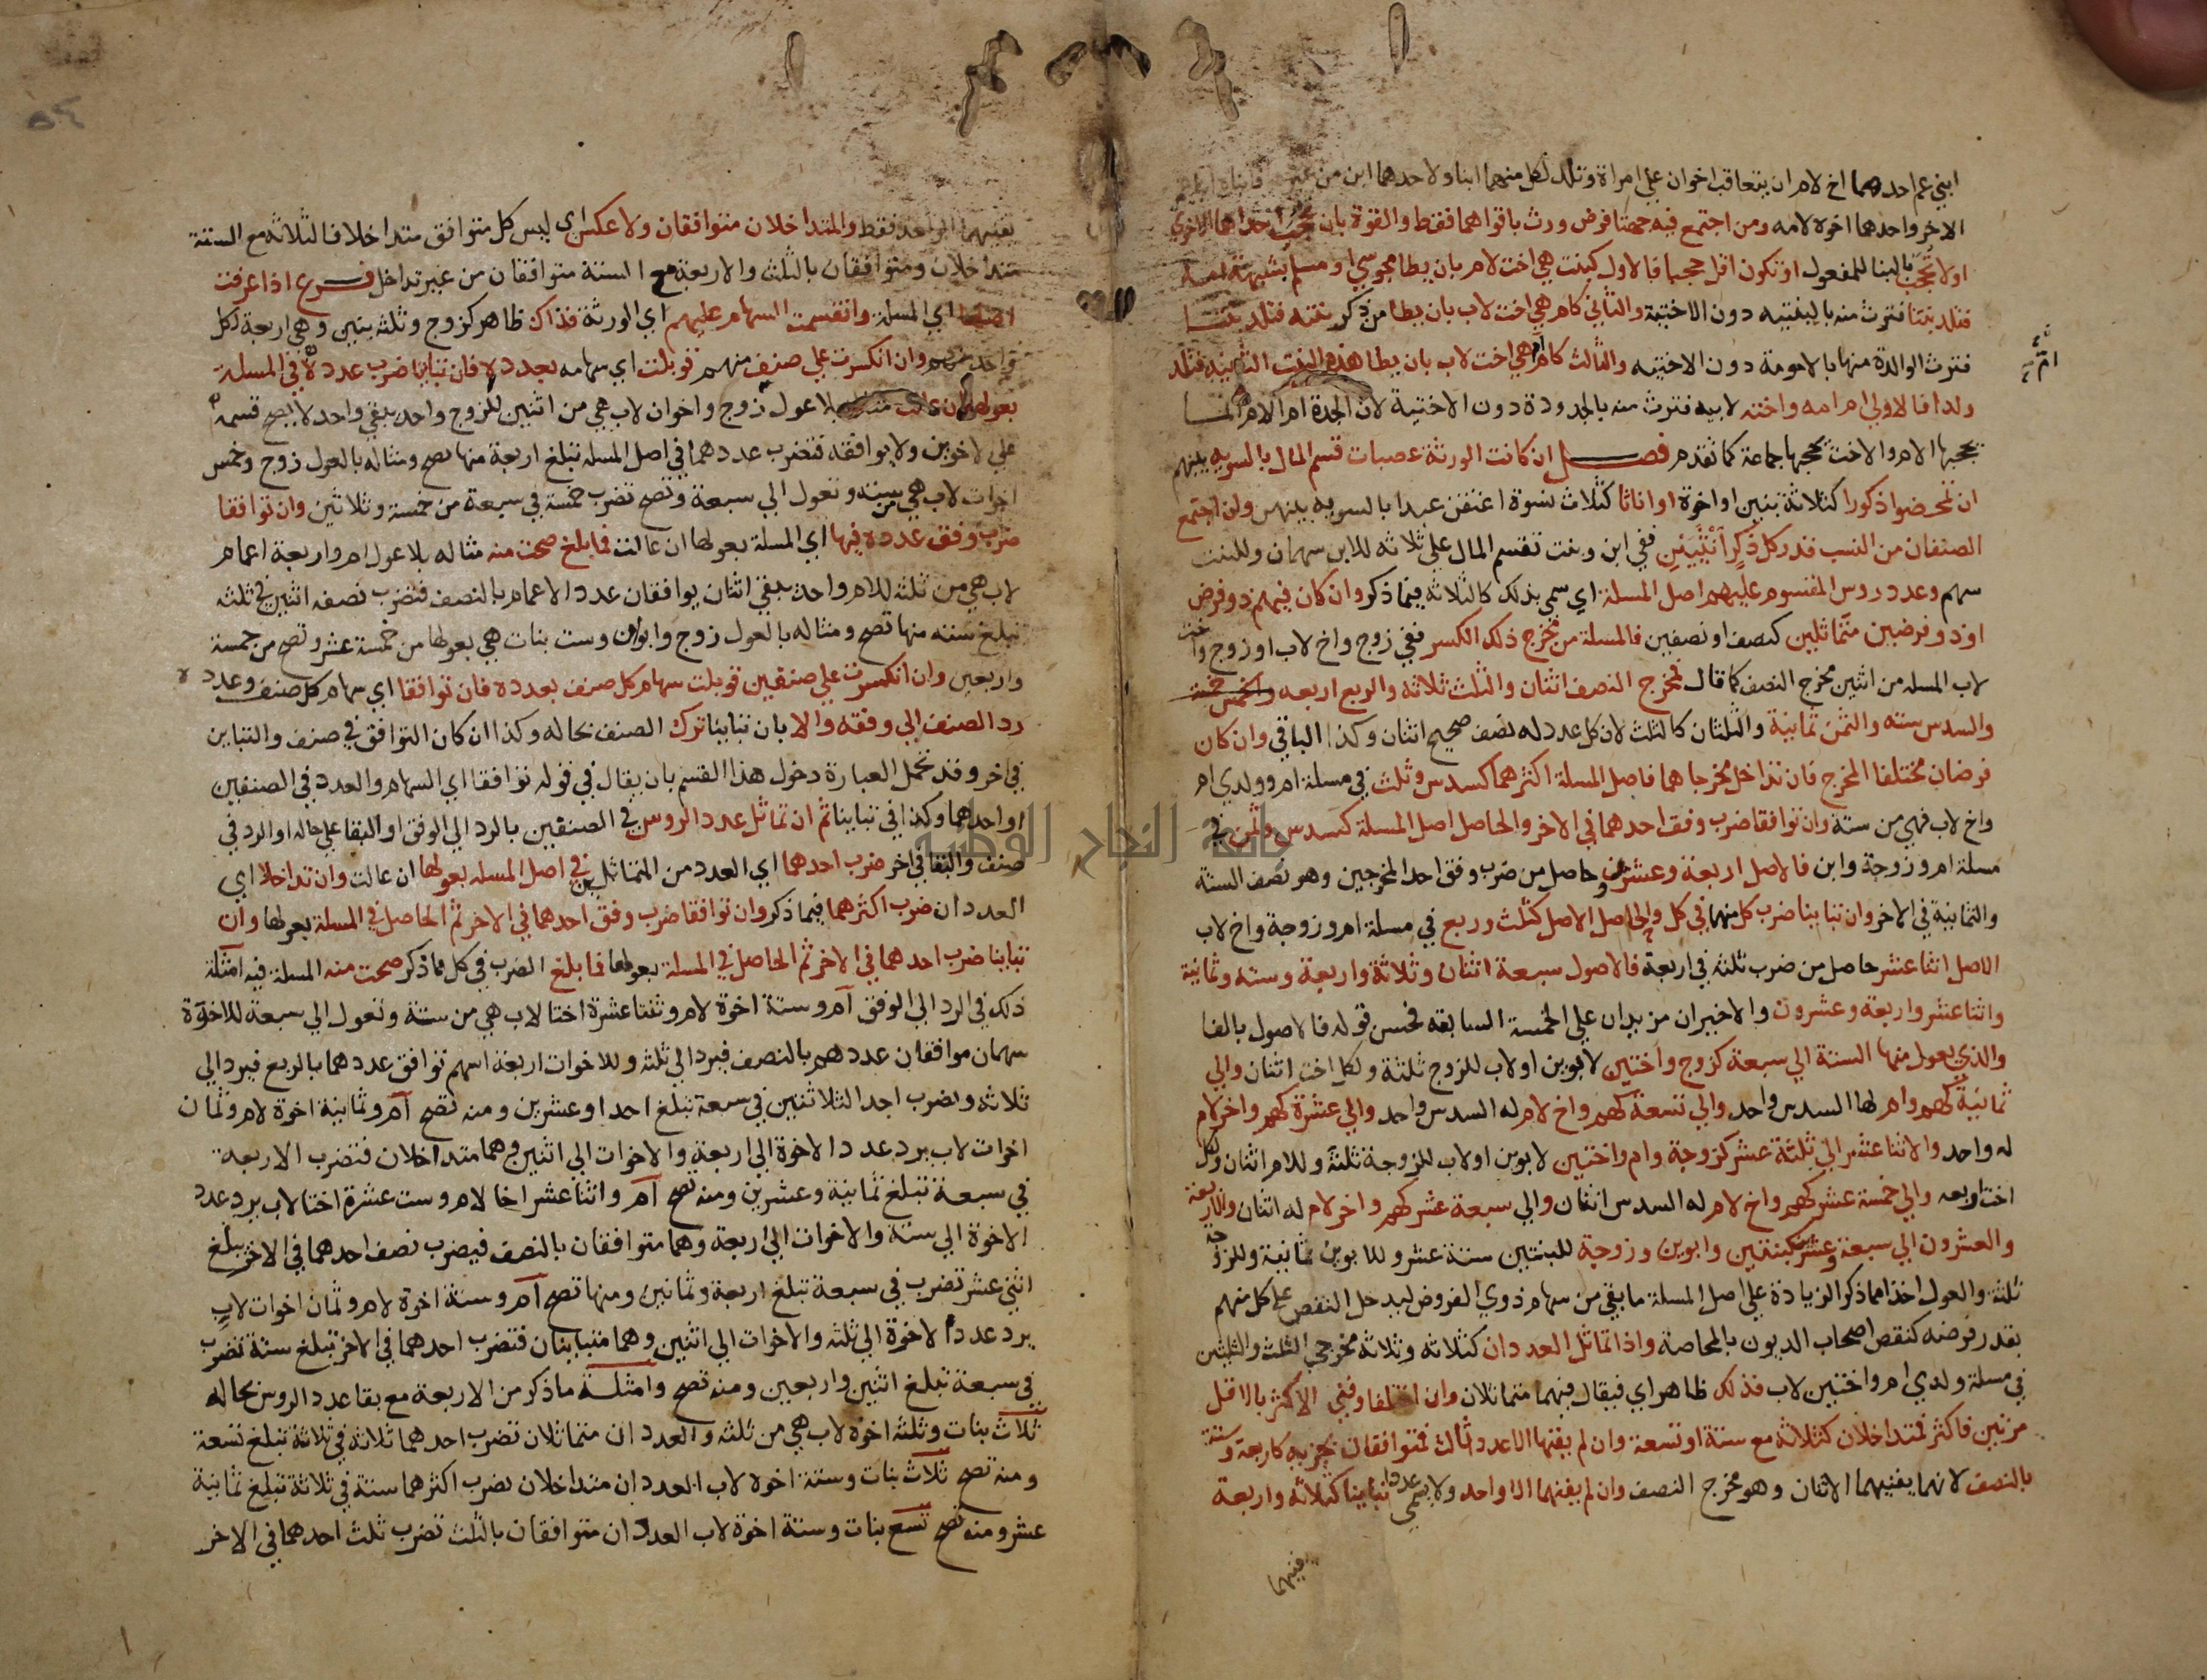 ابني عم احدهما اخ لام ان يتعاقب اخوان علي امراة وتلد لكل منهما ابنا ولاحدهما ابن من
الاخر واحدهما اخوه لامه ومن اجتمع فيه جهتا فرض ورث باقواهما فقط والقوة بان تحجب احداهما الاخري
اولا تحجب بالبنا للمفعول او تكون اقل حجبا فالاول كبنت هي اخت لام بان يطا مجوسي او مسلم بشبهة امه
فتلد بنتا فترث منه بالبنتيه دون الاختية والثاني كام هي اخت لاب بان يطا من ذكر بنته فتلد بنتا
فترث الوالدة منها بالامومة دون الاختيه والثالث كام ام هي اخت لاب بان يطا هذه البنت الثانيه فتلد
ولدا فالاولي ام امه واخته لابيه فترث منه بالجدودة دون الاختية لان الجدة ام الام انما
يحجبها الام والاخت يحجبها جماعة كما تقدم فصل ان كانت الورثة عصبات قسم المال بالسويه بينهم
ان تمحضوا ذكورا كثلاثة بنين او اخوة او اناثا كثلاث نسوة اعتقن عبدا بالسويه بينهن وان اجتمع
الصنفان من النسب قدر كل ذكر انثيين ففي ابن وبنت تقسم المال علي ثلاثه للابن سهمان وللبنت
سهم وعدد روس المقسوم عليهم اصل المسلة اي سمي بذلك كالثلاثه فيما ذكر وان كان فيهم ذو فرض
او ذو فرضين متماثلين كنصف او نصفين فالمسلة من مخرج ذلك الكسر ففي زوج واخ لاب او زوج واخت
لاب المسله من اثنين مخرج النصف كما قال فمخرج النصف اثنان والثلث ثلاثة والربع اربعه والخمس خمسة
والسدس سته والثمن ثمانية والثلثان كالثلث لان كل عدد له نصف صحيح اثنان وكذا الباقي وان كان
فرضان مختلفا المخرج فان تداخل مخرجاهما فاصل المسلة اكثرهما كسدس وثلث في مسلة ام وولدي ام
واخ لاب فهي من ستة وان توافقا ضرب وفق احدهما في الاخر والحاصل اصل المسلة كسدس وثمن في
مسلة ام وزوجة وابن فالاصل اربعة وعشرون حاصل من ضرب وفق احد المخرجين وهو نصف الستة
والثمانية في الاخر وان تباينا ضرب كل منهما في كل والحاصل الاصل كثلث وربع في مسلة ام وزوجة واخ لاب
الاصل اثنا عشر حاصل من ضرب ثلثه في اربعة فالاصول سبعة اثنان وثلاثة واربعة وسته وثمانية
واثنا عشر واربعة وعشرون والاخيران مزيدان علي الخمسة السابقه فحسن قوله فالاصول بالفا
والذي يعول منها الستة الي سبعة كزوج واختين لابوين او لاب للزوج ثلثة ولكل اخت اثنان والي
ثمانية كهم وام لها السدس واحد والي تسعة كهم واخ لام له السدس واحد والي عشرة كهم واخر لام
له واحد والاثنا عشر الي ثلثة عشر كزوجة وام واختين لابوين او لاب للزوجة ثلثة وللام اثنان ولكل
اخت اربعه والي خمسة عشر كهم واخ لام له السدس اثنان والي سبعة عشر كهم واخر لام له اثنان والاربعة
والعشرون الي سبعة وعشرين كبنتين وابوين وزوجة للبنتين ستة عشر وللابوين ثمانية وللزوجة
ثلثة والعول اخذا مما ذكر الزيادة علي اصل المسلة ما بقي من سهام ذوي الفروض ليدخل النقص علي كل منهم
بقدر فرضه كنقص اصحاب الديون بالمحاصة واذا تماثل العددان كثلاثه وثلاثه مخرجي الثلث والثلثين
في مسلة ولدي ام واختين لاب فذلك ظاهر اي فيقال فيهما متماثلان وان اختلفا وفني الاكثر بالاقل
مرتين فاكثر فمتداخلان كثلاثه مع ستة او تسعة وان لم يفنهما الا عدد ثالث فمتوافقان بجزيه كاربعة وستة
بالنصف لانهما يفنيهما الاثنان وهو مخرج النصف وان لم يفنهما الا واحد ولا يسمي عددا تباينا كثلاثه واربعة
يفنيهما
يفنيهما الواحد فقط والمتداخلان متوافقان ولا عكس اي ليس كل متوافق متداخلا فالثلاثه مع الستة
متداخلان ومتوافقان بالثلث والاربعة مع الستة متوافقان من غير تداخل فرع اذا عرفت
اصلها اي المسلة وانقسمت السهام عليهم اي الورثة فذاك ظاهر كزوج وثلثه بنين وهي اربعة لكل
واحد سهم وان انكسرت علي صنف منهم قوبلت اي سهامه بعدده فان تباينا ضرب عدده في المسلة
بعولها ان عالت مثاله بلا عول زوج واخوان لاب هي من اثنين للزوج واحد يبقي واحد لا يصح قسمه
علي لاخوين ولا يوافقه فتضرب عددهما في اصل المسله تبلغ اربعة منها تصح ومثاله بالعول زوج وخمس
اخوات لاب هي من ستة وتعول الي سبعة وتصح تضرب خمسة في سبعة من خمسة وثلاثين وان توافقا
ضرب وفق عدده فيها اي المسلة بعولها ان عالت فما بلغ صحت منه مثاله بلا عول ام واربعة اعمام
لاب هي من ثلثة للام واحد يبقي اثنان يوافقان عدد الاعمام بالنصف فتضرب نصفه اثنين في ثلثه
تبلغ سته منها تصح ومثاله بالعول زوج وابوان وست بنات هي بعولها من خمسة عشر وتصح من خمسة
واربعين وان انكسرت علي صنفين قوبلت سهام كل صنف بعدده فان توافقا اي سهام كل صنف وعدده
رد الصنف الي وفقه والا بان تباينا ترك الصنف بحاله وكذا ان كان التوافق في صنف والتباين
في اخر وقد تحمل العبارة دخول هذا القسم بان يقال في قوله توافقا اي السهام والعدد في الصنفين
او احدهما وكذا في تباينا ثم ان تماثل عدد الروس في الصنفين بالرد الي الوفق او البقا علي حاله او الرد في
صنف والبقا في اخر ضرب احدهما اي العدد من المتماثلين في اصل المسله بعولها ان عالت وان تداخلا اي
العددان ضرب اكثرهما فيما ذكر وان توافقا ضرب وفق احدهما في الاخر ثم الحاصل في المسلة بعولها وان
تباينا ضرب احدهما في الاخر ثم الحاصل في المسلة بعولها فما بلغ الضرب في كل مما ذكر صحت منه المسلة فيه امثلة
ذلك في الرد الي الوفق ام وستة اخوة لام وثنتا عشرة اختا لاب هي من ستة وتعول الي سبعة للاخوة
سهمان موافقان عددهم بالنصف فيرد الي ثلثه وللاخوات اربعة اسهم توافق عددهما بالربع فيرد الي
ثلاثه وتضرب احد الثلاثتين في سبعة تبلغ احدا وعشرين ومنه تصح ام وثمانية اخوة لام وثمان
اخوات لاب يرد عدد الاخوة الي اربعة والاخوات الي اثنين وهما متداخلان فتضرب الاربعة
في سبعة تبلغ ثمانية وعشرين ومنه تصح ام واثنا عشر اخا لام وست عشرة اختا لاب يرد عدد
الاخوة الي ستة والاخوات الي اربعة وهما متوافقان بالنصف فيضرب نصف احدهما في الاخر يبلغ
اثني عشر تضرب في سبعة تبلغ اربعة وثمانين ومنها تصح ام وستة اخوة لام وثمان اخوات لاب
يرد عدد الاخوة الي ثلثه والاخوات الي اثنين وهما متباينان فتضرب احدهما في الاخر تبلغ ستة تضرب
في سبعة تبلغ اثنين واربعين ومنه تصح وامثلة ما ذكر من الاربعة مع بقا عدد الروس بحاله
ثلاث بنات وثلثه اخوة لاب هي من ثلثه والعددان متماثلان تضرب احدهما ثلاثه في ثلاثة تبلغ تسعة
ومنه تصح ثلاث بنات وستة اخوة لاب العددان متداخلان تضرب اكثرهما ستة في ثلاثة تبلغ ثمانية
عشر ومنه تصح تسع بنات وستة اخوة لاب العددان متوافقان بالثلث تضرب ثلث احدهما في الاخر
جامعة النجاح الوطنية